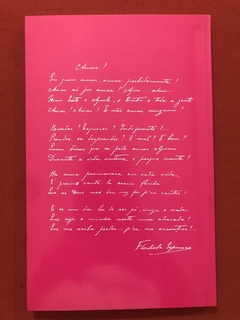 Amar!
Eu quero amar, amar perdidamente!
Amar só por amar! Aqui... além...
Mais Este e Aquele, o Outro e toda a gente
Amar! Amar! E não amar ninguém!
Recordar? Esquecer? Indiferente!...
Prender ou desprender? É mal? É bem?
Quem disser que se pode amar alguem
Durante a vida inteira é porque mente!
Ha uma primavera em cada vida,
É preciso cantá-la assim florida
Se Deus nos deu voz foi p'ra cantar!
E se um dia hei de ser pó, cinza e nada
Que seja a minha noite uma alvorada!
Que me saiba perder... p'ra me encontrar!...
Florbela Espanca